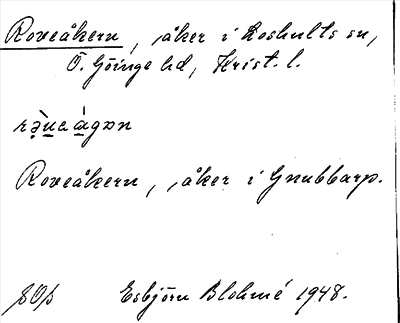 Roveåkern, åker i Loshults sn,
Ö. Göinge hd, Krist. l.
Roveåkern, åker i Gnubbarp.
Esbjörn Blohmé 1948.